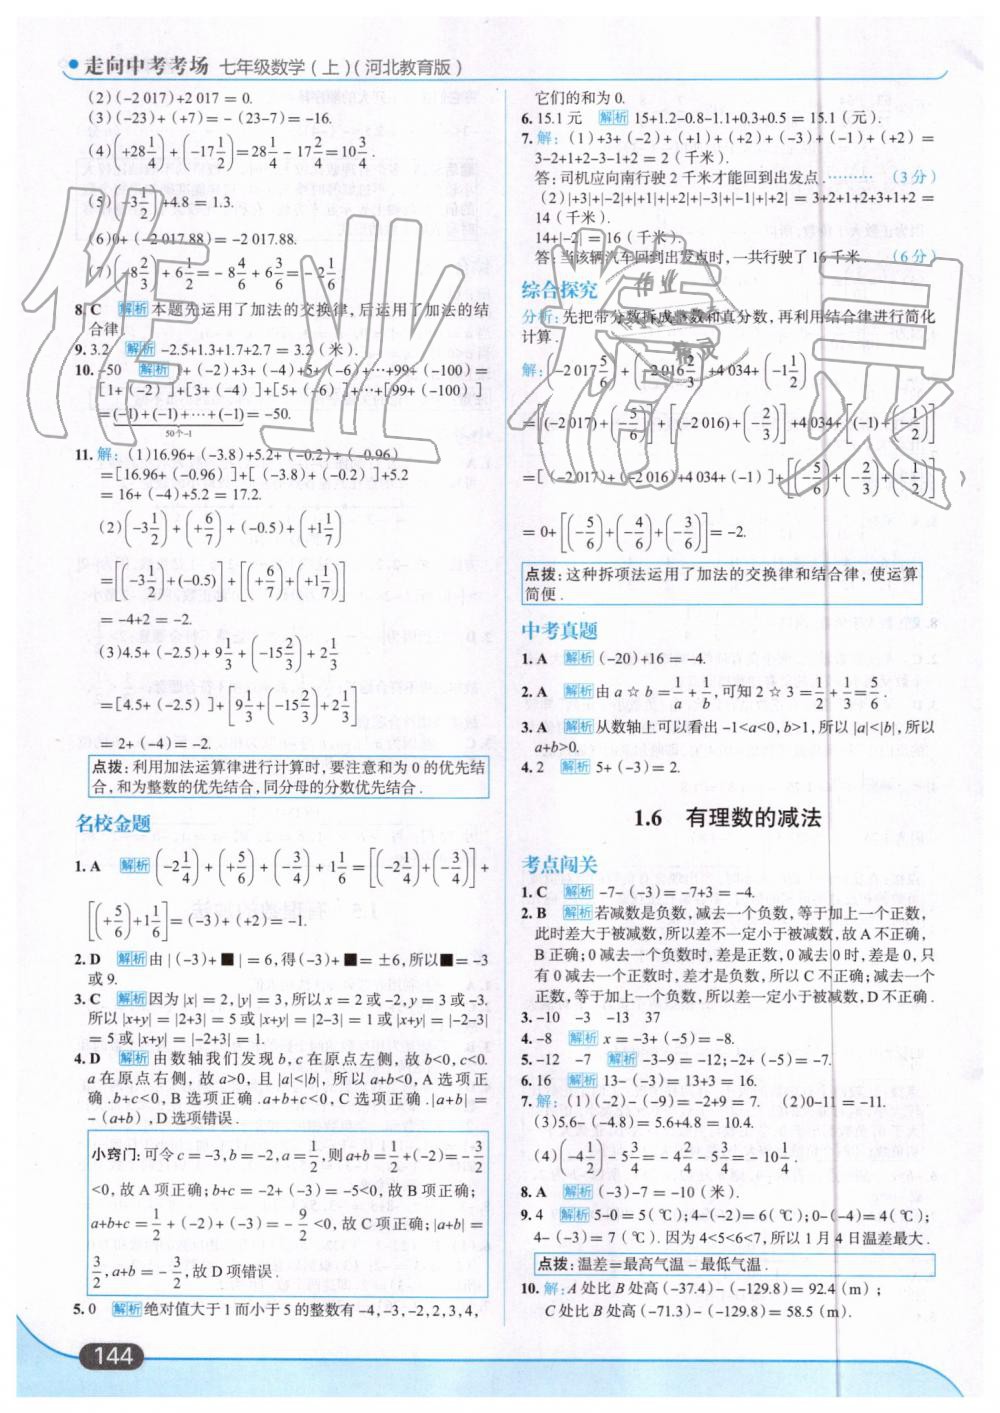 走向中考考场 七年级数学(上)(河北教育版)
(2)(-2 017)+2 017 = 0.
(3)(-23)+(+7)= -(23-7)= -16.
(4)(+28 1/4)+(-17 1/2)=28 1/4 - 17 2/4 =10 3/4.
(5)(-3 1/2)+4.8 = 1.3.
(6)0+(-2 017.88)= -2 017.88.
(7)(-8 2/3)+6 1/2 = -8 4/6+6 3/6 = -2 1/6.
8. C 解析 本题先运用了加法的交换律,后运用了加法的结
合律.
9. 3.2 解析 -2.5+1.3+1.7+2.7 = 3.2(米).
10. -50 解析 1+(-2)+3+(-4)+5+(-6)+…+99+(-100)=
[1+(-2)]+[3+(-4)]+[5+(-6)]+…+[99+(-100)]
=(-1)+(-1)+…+(-1)= -50.
50个-1
11. 解:(1)16.96+(-3.8)+5.2+(-0.2)+(-0.96)
=[16.96+(-0.96)]+[(-3.8)+(-0.2)]+5.2
= 16+(-4)+5.2 = 17.2.
(2)(-3 1/2)+(+6/7)+(-0.5)+(+1 1/7)
=[(-3 1/2)+(-0.5)]+[(+6/7)+(+1 1/7)]
= -4+2 = -2.
(3)4.5+(-2.5)+9 1/3+(-15 2/3)+2 1/3
=[4.5+(-2.5)]+[9 1/3+(-15 2/3)+2 1/3]
= 2+(-4)= -2.
点拨:利用加法运算律进行计算时,要注意和为0的优先结
合,和为整数的优先结合,同分母的分数优先结合.
名校金题
1. A 解析 (-2 1/4)+(+5/6)+(-3/4)+1 1/6=[(-2 1/4)+(-3/4)]+
[(+5/6)+1 1/6]=(-3)+(+2)= -1.
2. D 解析 由|(-3)+■|= 6,得(-3)+■= ±6,所以■= -3
或9.
3. C 解析 因为|x|= 2,|y|= 3,所以x = 2或-2,y = 3或-3.
所以|x+y|=|2+3|= 5或|x+y|=|2-3|= 1或|x+y|=|-2-3|
= 5或|x+y|=|-2+3|= 1.
4. D 解析 由数轴我们发现b,c在原点左侧,故b<0,c<0.
a在原点右侧,故a>0,且|a|<|b|,所以a+b<0,A选项正
确.b+c<0,B选项正确.a+b+c<0,C选项正确.|a+b|=
-(a+b),D选项错误.
小窍门:可令c = -3,b = -2,a = 1/2,则a+b = 1/2+(-2)= -3/2
<0,故A项正确;b+c = -2+(-3)= -5<0,故B项正确;
a+b+c = 1/2+(-2)+(-3)= -9/2<0,故C项正确;|a+b|=
3/2,a+b = -3/2,故D项错误.
5. 0 解析 绝对值大于1而小于5的整数有-4,-3,-2,2,3,4,
144
它们的和为0.
6. 15.1元 解析 15+1.2-0.8-1.1+0.3+0.5 = 15.1(元).
7. 解:(1)+3+(-2)+(+1)+(+2)+(-3)+(-1)+(+2)=
3-2+1+2-3-1+2 = 2(千米).
答:司机应向南行驶2千米才能回到出发点.………(3分)
(2)|+3|+|-2|+|+1|+|+2|+|-3|+|-1|+|+2|= 3+2+1+2+3+1+2 =
14(千米).
14+|-2|= 16(千米).
答:当该辆汽车回到出发点时,一共行驶了16千米.(6分)
综合探究
分析:先把带分数拆成整数和真分数,再利用结合律进行简化
计算.
解:(-2 017 5/6)+(-2 016 2/3)+4 034+(-1 1/2)
=[(-2 017)+(-5/6)]+[(-2 016)+(-2/3)]+4 034+[(-1)+(-1/2)]
=[(-2 017)+(-2 016)+4 034+(-1)]+[(-5/6)+(-2/3)+(-1/2)]
= 0+[(-5/6)+(-4/6)+(-3/6)]= -2.
点拨:这种拆项法运用了加法的交换律和结合律,使运算
简便.
中考真题
1. A 解析 (-20)+16 = -4.
2. A 解析 由a☆b = 1/a+1/b,可知2☆3 = 1/2+1/3=5/6.
3. A 解析 从数轴上可以看出-1<a<0,b>1,所以|a|<|b|,所以
a+b>0.
4. 2 解析 5+(-3)= 2.
1.6 有理数的减法
考点闯关
1. C 解析 -7-(-3)= -7+3 = -4.
2. B 解析 若减数是负数,减去一个负数,等于加上一个正数,
此时差大于被减数,所以差不一定小于被减数,故A不正确,
B正确;0减去一个负数时,差是正数,0减去0时,差是0,只
有0减去一个正数时,差才是负数,所以C不正确;减去一个
正数,等于加上一个负数,所以差一定小于被减数,D不正确.
3. -10 -3 -13 37
4. -8 解析 x = -3+(-5)= -8.
5. -12 -7 解析 -3-9 = -12;-2+(-5)= -7.
6. 16 解析 13-(-3)= 13+3 = 16.
7. 解:(1)(-2)-(-9)= -2+9 = 7. (2)0-11 = -11.
(3)5.6-(-4.8)= 5.6+4.8 = 10.4.
(4)(-4 1/2)-5 3/4= -4 2/4-5 3/4= -10 1/4.
8. A 解析 (-3)-7 = -10(米).
9. 4 解析 5-0 = 5(℃);4-(-2)= 6(℃);0-(-4)= 4(℃);
4-(-3)= 7(℃).因为4<5<6<7,所以1月4日温差最大.
点拨:温差=最高气温-最低气温.
10. 解:A处比B处高(-37.4)-(-129.8)= 92.4(m);
C处比B处高(-71.3)-(-129.8)= 58.5(m).
作业精灵